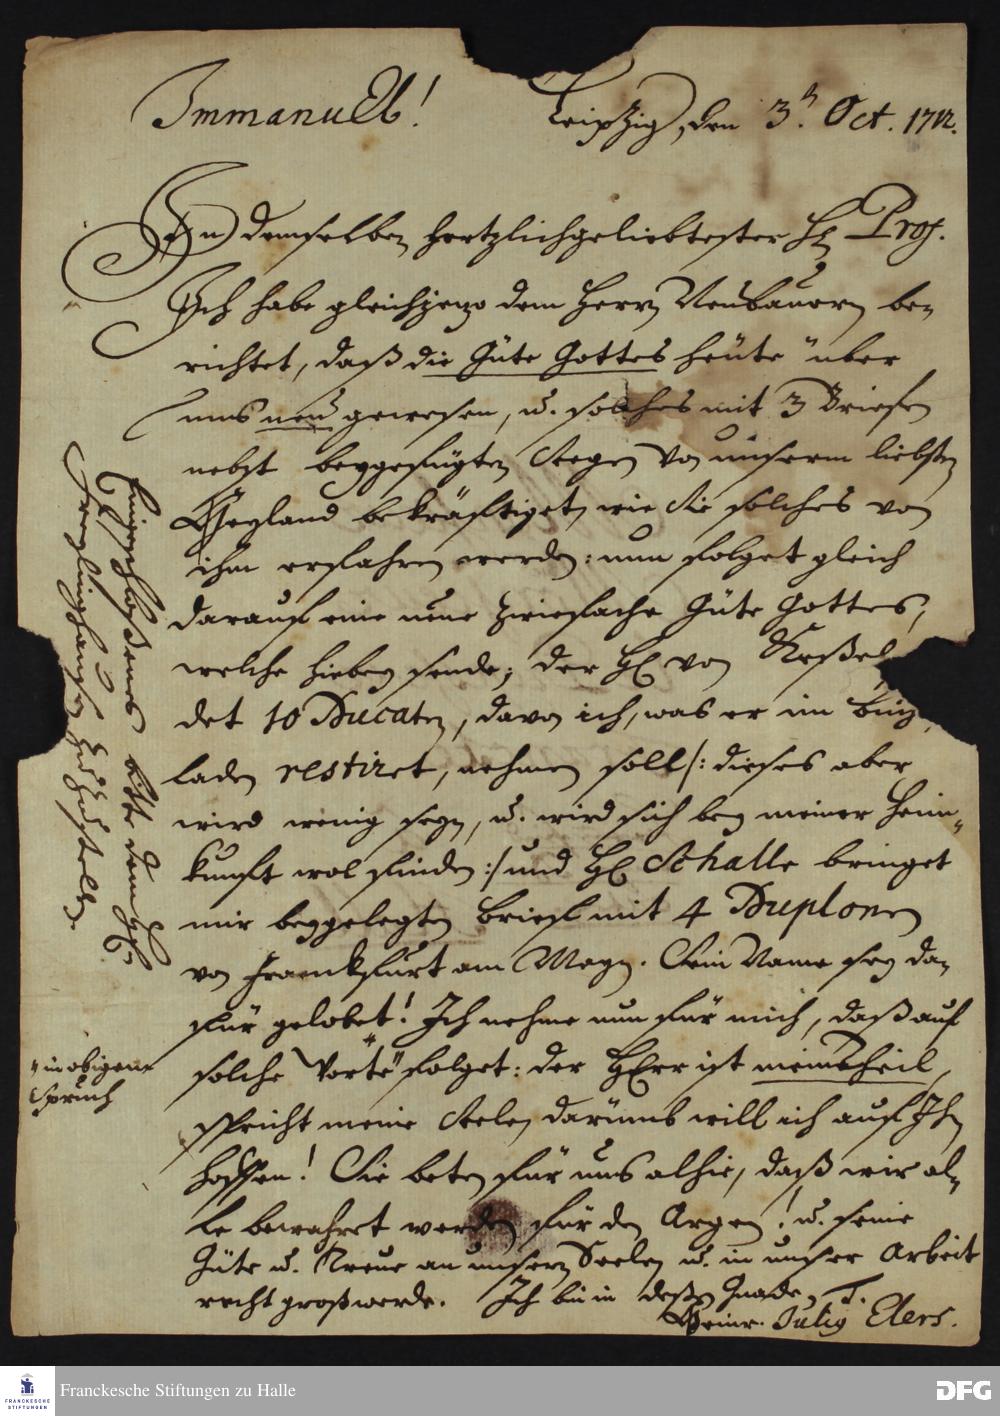 Immanuel!
Leipzig, den 3t. Oct. 1712.
In demselben hertzlichgeliebtester H. Prof.
Ich habe gleich jezo dem Herrn Neubauern be-
richtet, daß die Güte Gottes heüte über
uns neu gewesen, u. solches mit 3 Briefen
nebst beygefügten Segen von unserm liebsten
Heyland bekräftiget, wie Sie solches von
ihm erfahren werden: nun folget gleich
darauf eine neue zwiefache Güte Gottes,
welche hiebey sende; der H. von Keßel
det 10 Ducaten, davon ich, was er im
laden restiret, nehmen soll /: dieses aber
wird wenig seyn, u. wird sich bey meiner Heim-
kunft wol finden :/ und H. Schalle bringet
mir beygelegten Brief mit 4 Duplonen
von Franckfurt am Mayn. Sein Name sey da-
für gelobet! Ich nehme nun für mich, daß auf
solche Worte " folget: der HErr ist mein Theil,
spricht meine Seele, darumb will ich auf Ihn
hoffen! Sie beten für uns alhie, daß wir al-
le bewahret werden für den Argen! u. seine
Güte u. Treue an unsern Seelen u. in unser Arbeit
recht groß werde. Ich bin in deßen Gnade, T.
Heinr. Julig Elers.
Eingeschloßenes bitte dem H.
Freylinghausen zuzustellen.
" in obigem
Spruch
Franckesche Stiftungen zu Halle
FRANCKESCHE
STIFTUNGEN
DFG